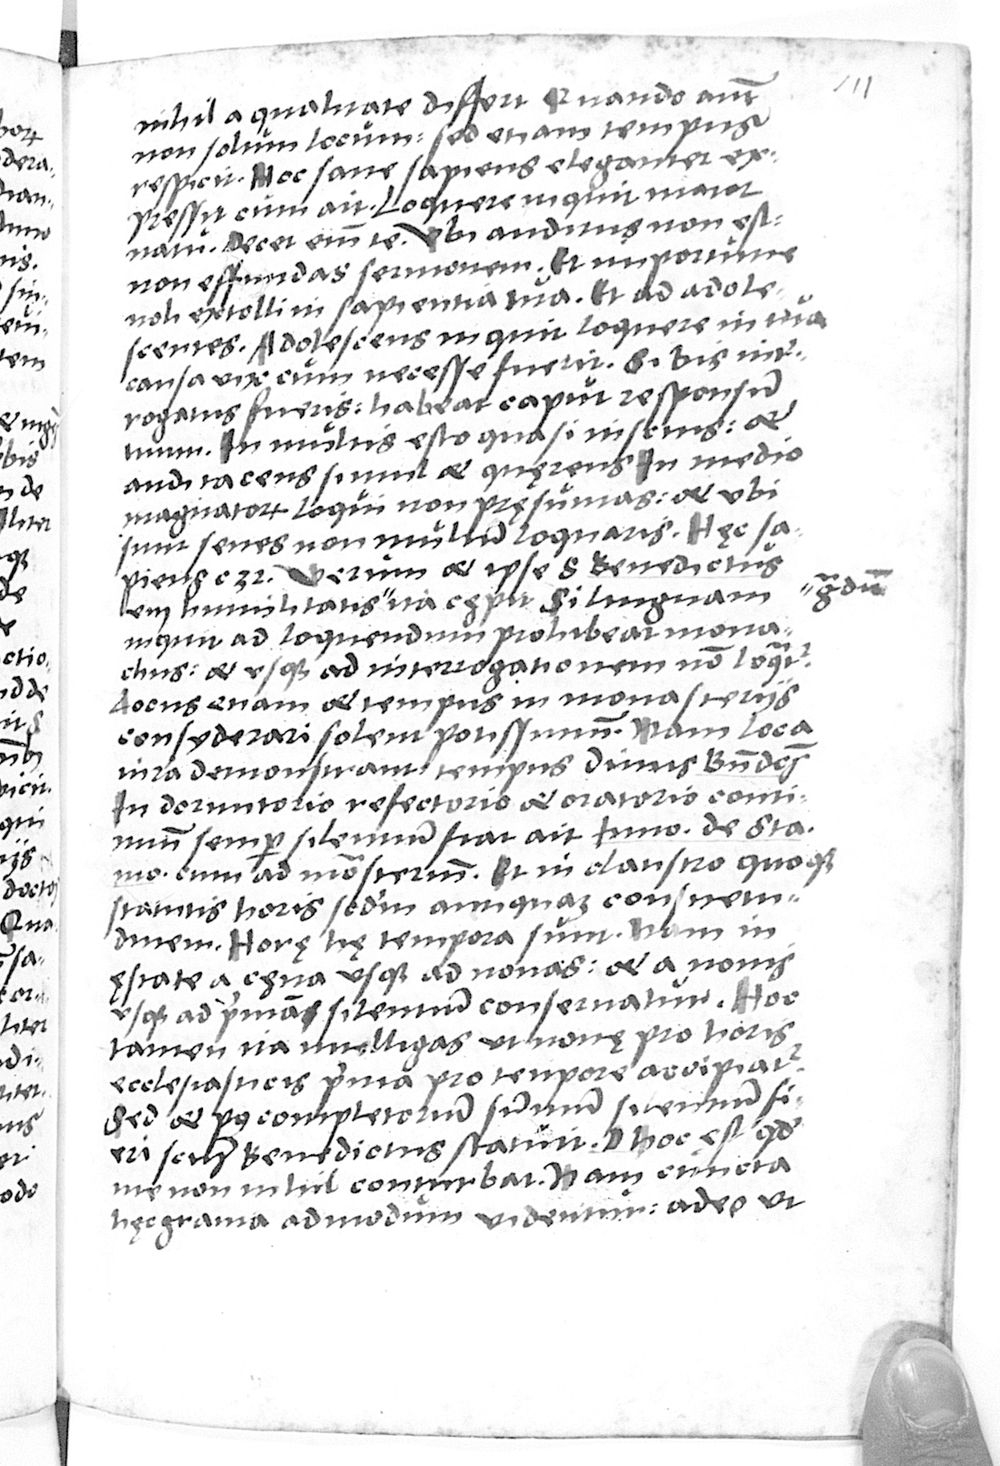 111
nihil a qualitate differt Quando aut̄
non solum locum: sed etiam tempus
respicit. Hoc sane sapiens eleganter ex-
pressit cum ait. Loquere inquit maior
natu. Decet em̄ te. Vbi auditus non est:
non effundas sermonem. Et importune
noli extolli in sapientia tua. Et ad adole-
scentes. Adolescens inquit loquere in tua
causa vix cum necesse fuerit. Si bis int̄-
rogatus fueris: habeat caput responsū
tuum. In multis esto quasi inscius: &
audi tacens simul & quęrens In medio
magnatorꝝ loqui non pręsumas: & vbi
sunt senes non multū loquaris. Hęc sa-
piens c 32. Verum & ipse S Benedictus
em humilitatis "ita cępit Si linguam "g̃dū
inquit ad loquendum prohibeat mona-
chus: & vsqꝫ ad interrogationem nō loq̃t᷑.
Locus etiam & tempus in monasterijs
consyderari solent potissimum̄. Nam loca
iura demonstrant: tempus diuus Bn̄dcs̄
In dormitorio refectorio & oratorio conti-
nuū semp̱ silentiū fiat ait Inno. de Sta.
mo. cum ad mōsteriū. Et in claustro quoqꝫ
statutis horis scd̄m antiquaꝫ consuetu-
dinem. Horę hę tempora sunt. Nam in
ęstate a cęna vsqꝫ ad nonas: & a nonis
vsqꝫ ad p̓mās silentiū conseruatur. Hoc
tamen ita intelligas vt nonę pro horis
ecclesiasticis p̓ma pro tempore accipiat᷑.
Sed & pꝰ completoriū sūmū silentiū fi-
eri sctūs Benedictus statuit. D Hoc est qd̄
me non nihil conturbat. Nam cuncta
hęc grauia admodum videntur: adeo vt